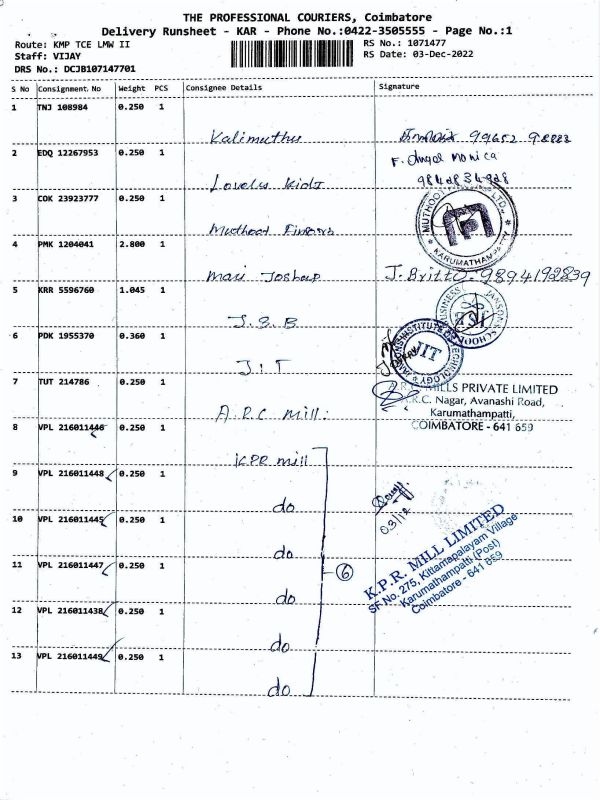 THE PROFESSIONAL COURIERS, Coimbatore
Delivery Runsheet - KAR - Phone No.:0422-3505555 - Page No.:1
Route: KMP TCE LMW II
RS No.: 1071477
Staff: VIJAY
RS Date: 03-Dec-2022
DRS No.: DCJB107147701
S No Consignment No Weight PCS Consignee Details Signature
1 TNJ 108984 0.250 1
Kalimuthu 99652 98883
2 EDQ 12267953 0.250 1
F. Angal Monica
Lovely Kids 9842834928
3 COK 23923777 0.250 1
Muthoot Fincorp
MUTHOOT LTD. KARUMATHAMPATTY
4 PMK 1204041 2.800 1
Mari Joshap J. Britto. 9894192839
5 KRR 5596760 1.045 1
J.S.B
JANSONS SCHOOL BUSINESS JSB
6 PDK 1955370 0.360 1
J.I.T
JANSONS INSTITUTE OF TECHNOLOGY JIT
7 TUT 214786 0.250 1
MILLS PRIVATE LIMITED
A.R.C mill:
R.C. Nagar, Avanashi Road,
Karumathampatti,
COIMBATORE - 641 659
8 VPL 216011446 0.250 1
K.P.R mill
9 VPL 216011448 0.250 1
do
03/12
10 VPL 216011445 0.250 1
do
K.P.R. MILL LIMITED
SF No. 275, Kittampalayam Village
Karumathampatti (Post)
Coimbatore - 641 659
11 VPL 216011447 0.250 1
6
do
12 VPL 216011438 0.250 1
do
13 VPL 216011449 0.250 1
do